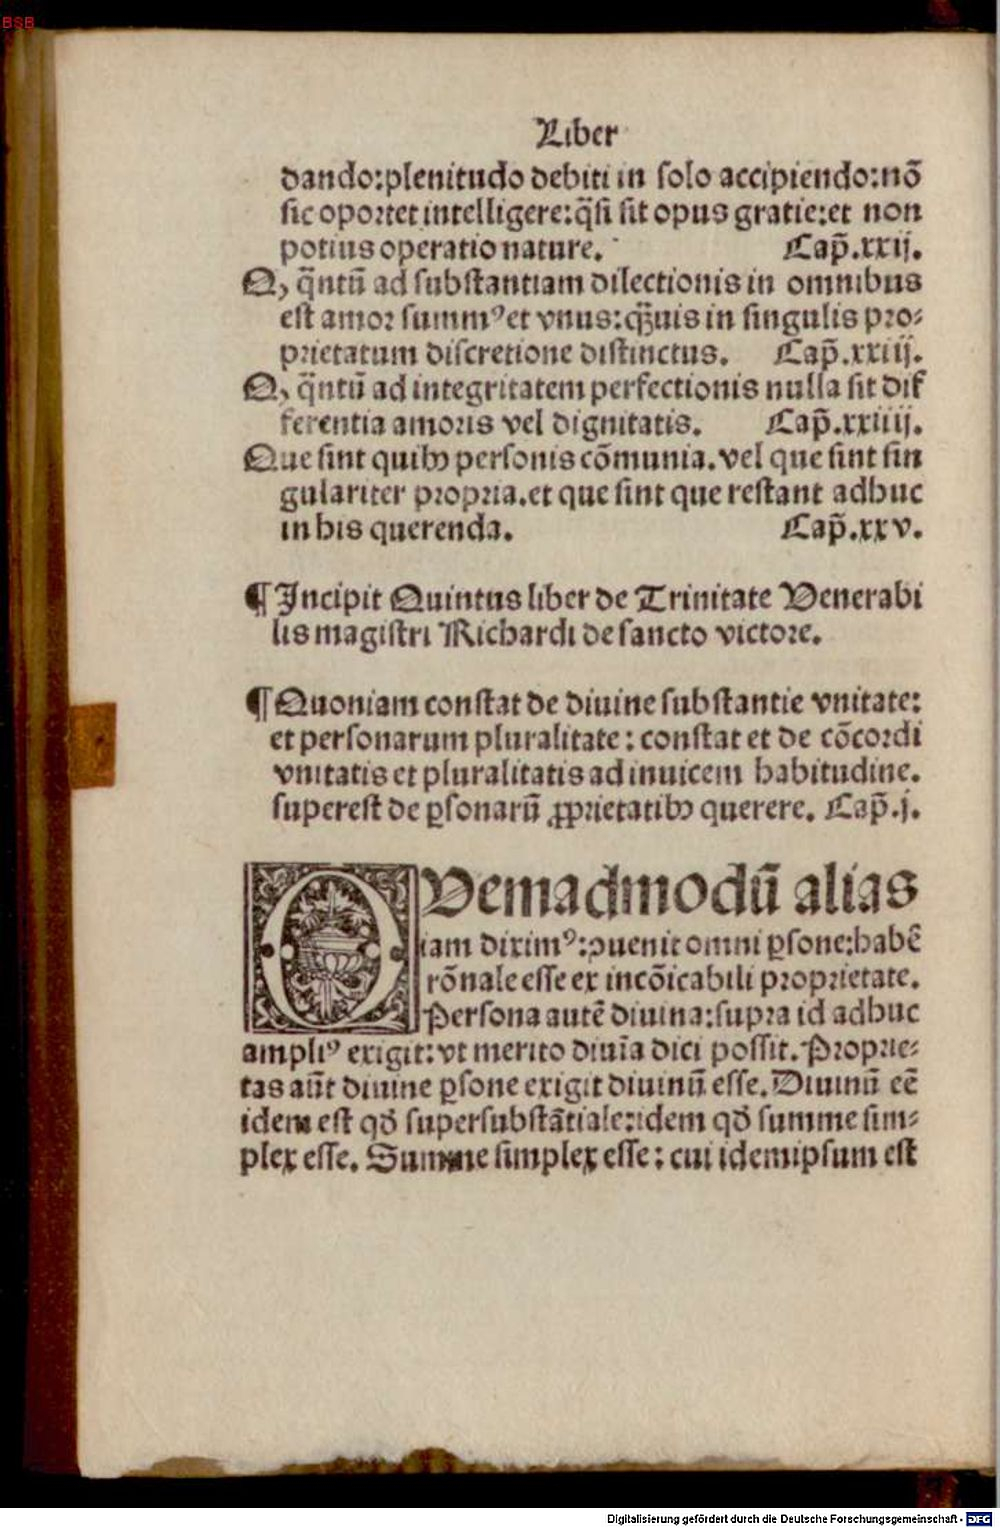 BSB
Liber
dando:plenitudo debiti in solo accipiendo:nõ
sic oportet intelligere:q̃si sit opus gratie:et non
potius operatio nature. Cap̃.xxij.
Qꝫ q̃ntũ ad substantiam dilectionis in omnibus
est amor summꝰ et vnus:q̃ꝫuis in singulis pro-
prietatum discretione distinctus. Cap̃.xxiij.
Qꝫ q̃ntũ ad integritatem perfectionis nulla sit dif
ferentia amoris vel dignitatis. Cap̃.xxiiij.
Que sint quibꝰ personis cõmunia.vel que sint sin
gulariter propria.et que sint que restant adhuc
in his querenda. Cap̃.xxv.
¶ Incipit Quintus liber de Trinitate Venerabi
lis magistri Richardi de sancto victore.
¶ Quoniam constat de diuine substantie vnitate:
et personarum pluralitate: constat et de cõcordi
vnitatis et pluralitatis ad inuicem habitudine.
superest de ꝑsonarũ ꝓprietatibꝰ querere. Cap̃.j.
QVemadmodũ alias
iam diximꝰ:ꝯuenit omni ꝑsone:habẽ
rõnale esse ex incõicabili proprietate.
Persona autẽ diuina:supra id adhuc
ampliꝰ exigit:vt merito diuĩa dici possit. Proprie-
tas aũt diuine ꝑsone exigit diuinũ esse. Diuinũ eẽ
idem est qð supersubstãtiale:idem qð summe sim-
plex esse. Summe simplex esse: cui idemipsum est
Digitalisierung gefördert durch die Deutsche Forschungsgemeinschaft - DFG